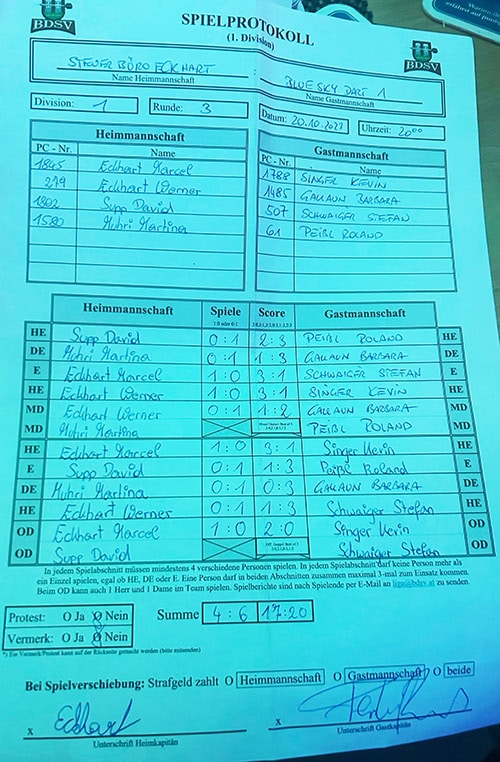 BDSV
SPIELPROTOKOLL
(1. Division)
BDSV
STEUERBÜRO ECKHART : BLUE SKY DART 1
Name Heimmannschaft Name Gastmannschaft
Division: 1 Runde: 3 Datum: 20.10.2022 Uhrzeit: 20°°
Heimmannschaft Gastmannschaft
PC - Nr. Name PC - Nr. Name
1845 Eckhart Marcel 1788 SINGER KEVIN
279 Eckhart Werner 1485 GALLAUN BARBARA
1802 Supp David 507 SCHWAIGER STEFAN
1580 Muhri Martina 61 PEIßL ROLAND
Heimmannschaft Spiele Score Gastmannschaft
1:0 oder 0:1
HE Supp David 0:1 2:3 PEIßL ROLAND HE
DE Muhri Martina 0:1 1:3 GALLAUN BARBARA DE
E Eckhart Marcel 1:0 3:1 SCHWAIGER STEFAN E
HE Eckhart Werner 1:0 3:1 SINGER KEVIN HE
MD Eckhart Werner 0:1 1:2 GALLAUN BARBARA MD
MD Muhri Martina PEIßL ROLAND MD
HE Eckhart Marcel 1:0 3:1 Singer Kevin HE
E Supp David 0:1 1:3 Peißl Roland E
DE Muhri Martina 0:1 0:3 GALLAUN BARBARA DE
HE Eckhart Werner 0:1 1:3 Schwaiger Stefan HE
OD Eckhart Marcel 1:0 2:0 Singer Kevin OD
OD Supp David Schwaiger Stefan OD
In jedem Spielabschnitt müssen mindestens 4 verschiedene Personen spielen. In jedem Spielabschnitt darf keine Person mehr als
ein Einzel spielen, egal ob HE, DE oder E. Eine Person darf in beiden Abschnitten zusammen maximal 3-mal zum Einsatz kommen.
Beim OD kann auch 1 Herr und 1 Dame im Team spielen. Spielberichte sind nach Spielende per E-Mail an liga@bdsv.at zu senden.
Protest: O Ja O Nein Summe 4:6 17:20
Vermerk: O Ja O Nein
*) Ein Vermerk/Protest kann auf der Rückseite gemacht werden (bitte mitsenden)
Bei Spielverschiebung: Strafgeld zahlt O Heimmannschaft O Gastmannschaft O beide
x Eckhart x
Unterschrift Heimkapitän Unterschrift Gastkapitän